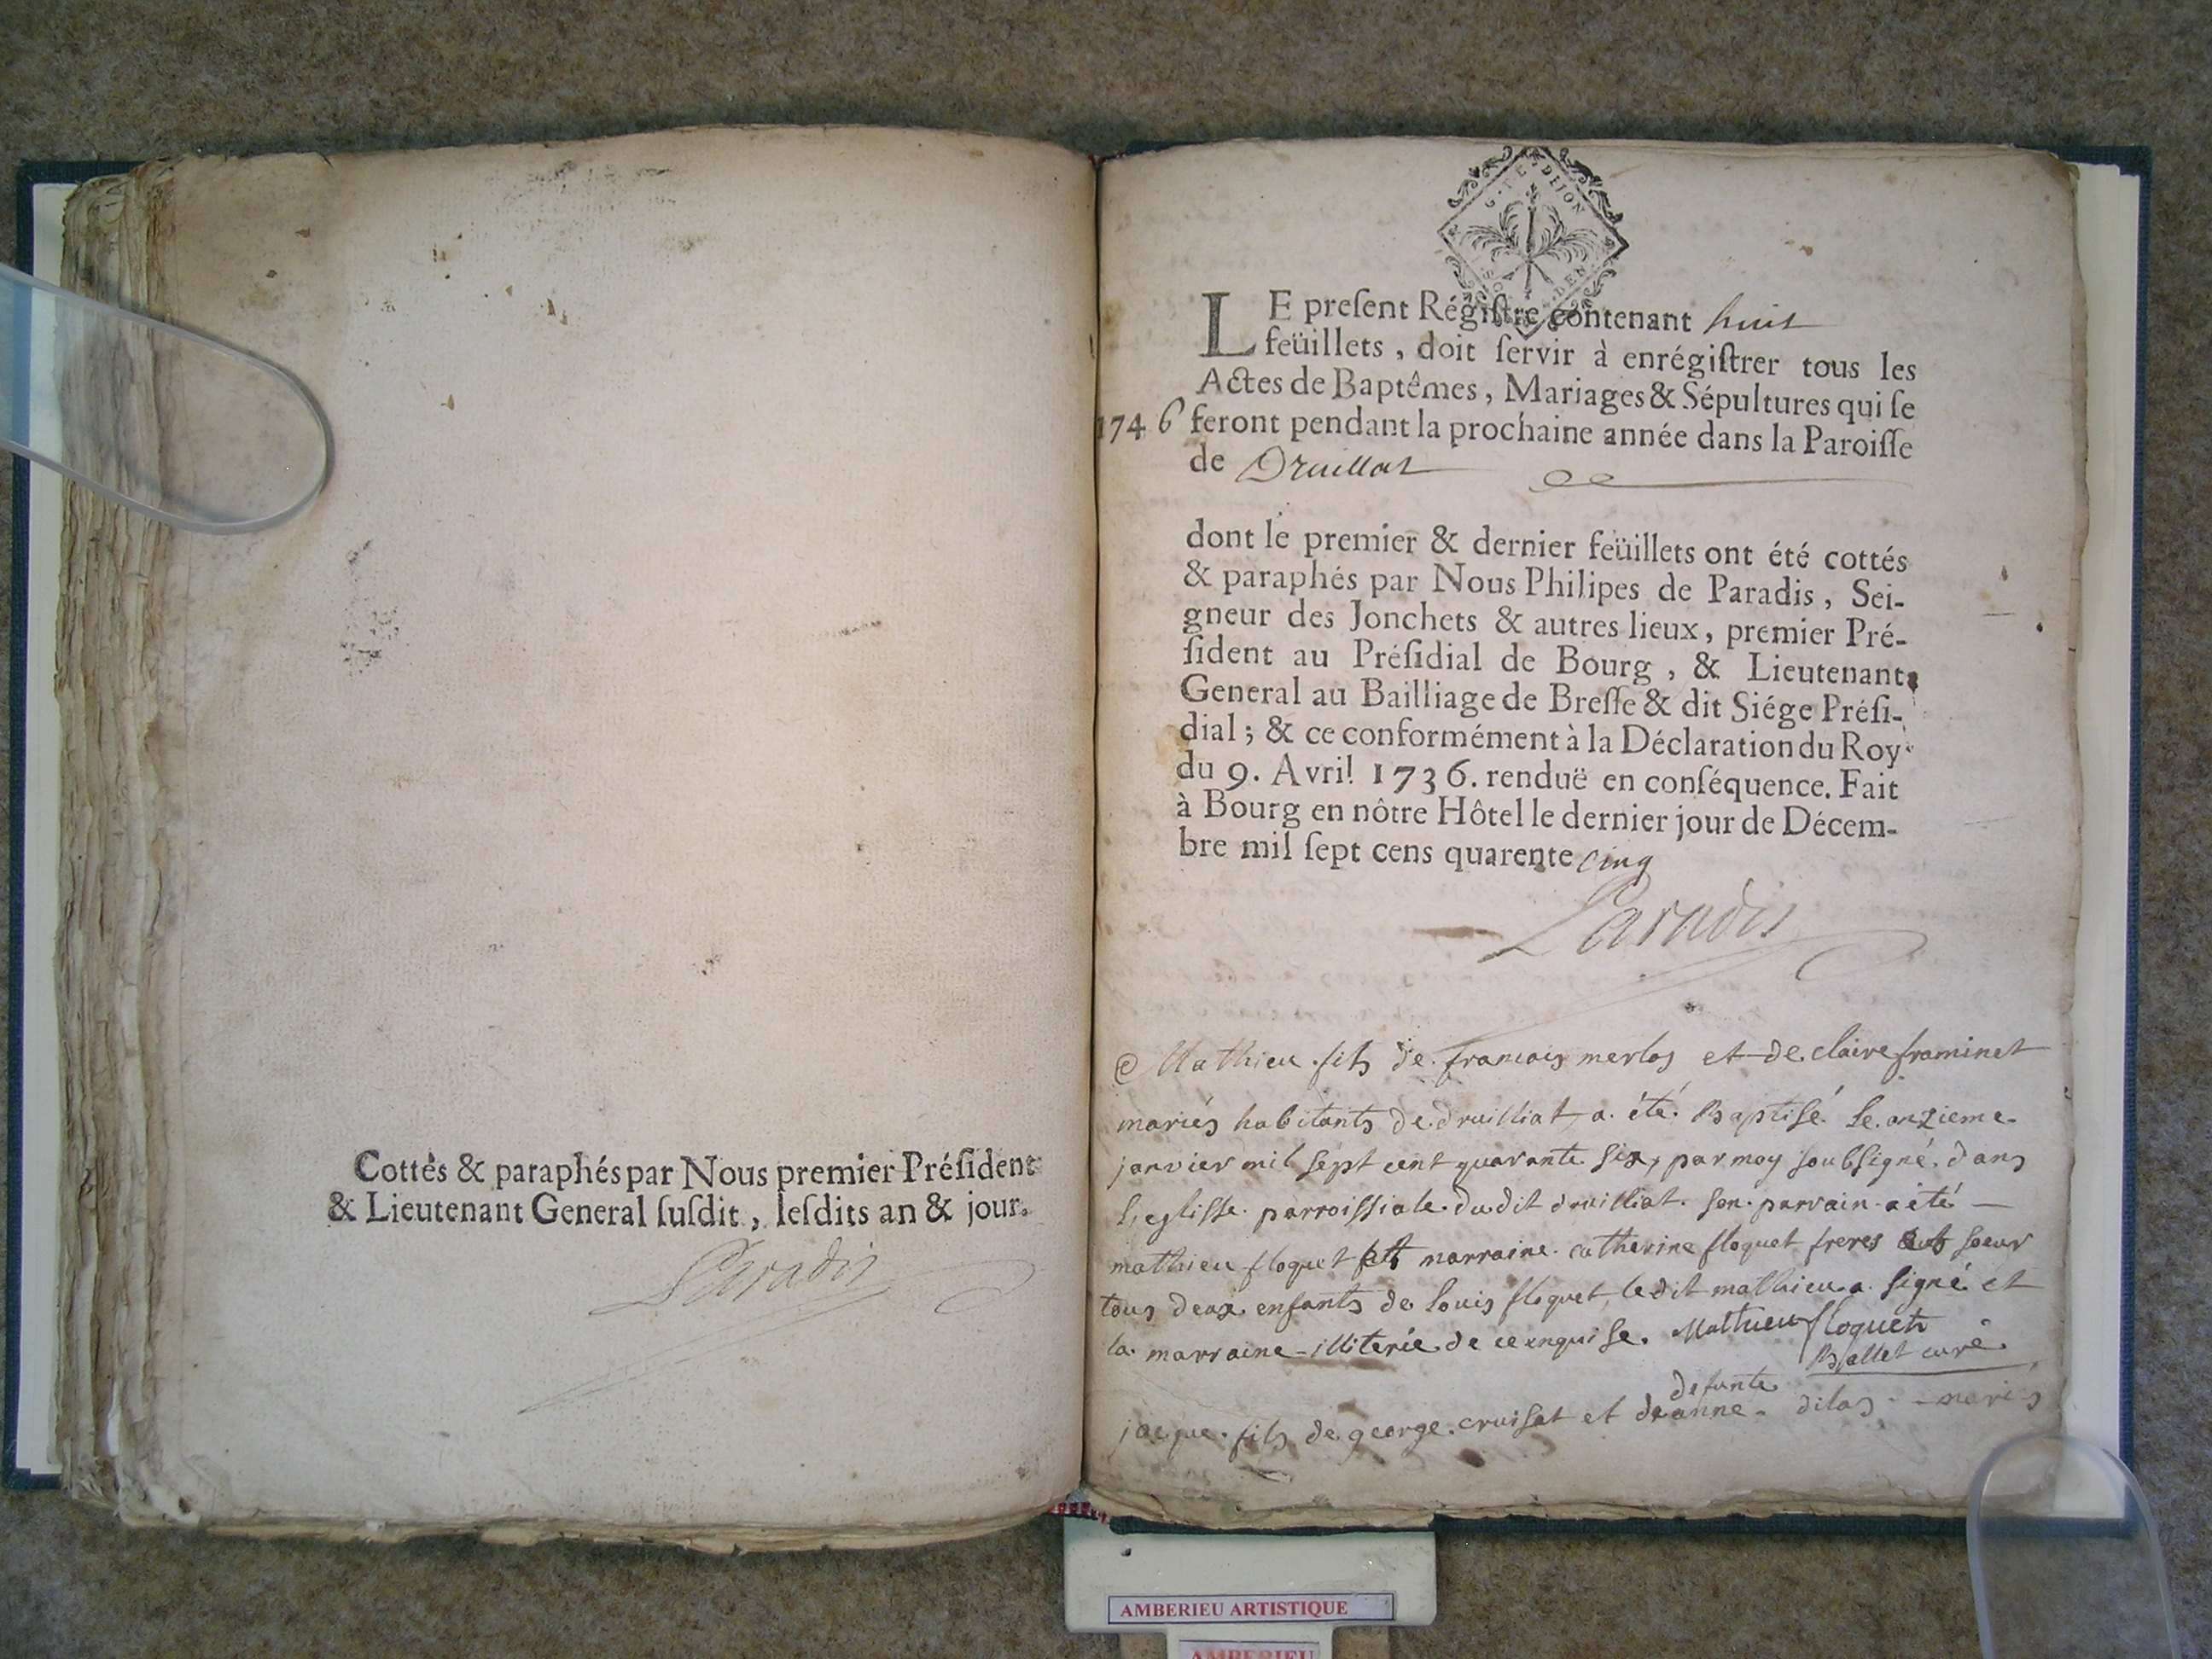 Cottés & paraphés par Nous premier Préſident
& Lieutenant General ſuſdit, leſdits an & jour.
Paradis
G.TE DE DIJON
LE preſent Régiſtre contenant huit
feüillets, doit ſervir à enrégiſtrer tous les
Actes de Baptêmes, Mariages & Sépultures qui ſe
1746 feront pendant la prochaine année dans la Paroiſſe
de Druillat
dont le premier & dernier feüillets ont été cottés
& paraphés par Nous Philipes de Paradis, Sei-
gneur des Jonchets & autres lieux, premier Pré-
ſident au Préſidial de Bourg, & Lieutenant
General au Bailliage de Breſſe & dit Siége Préſi-
dial; & ce conformément à la Déclaration du Roy
du 9. Avril 1736. renduë en conſéquence. Fait
à Bourg en nôtre Hôtel le dernier jour de Décem-
bre mil ſept cens quarente cinq
Paradis
Mathieu fils de francois merlos et de claire framinet
mariés habitants de druilliat a été Baptisé le onzieme
janvier mil sept cent quarante six, par moy soubsigné dans
l'eglisse parroissiale dudit druilliat. son parrain a été
mathieu floquet marraine catherine floquet freres soeur
tous deux enfants de louis floquet, ledit mathieu a signé et
la marraine illiterée de ce enquise. Mathieu floquet
Ballet curé
defunte
jacque fils de george cruisat et deanne dilas mariés
AMBERIEU ARTISTIQUE
AMBERIEU